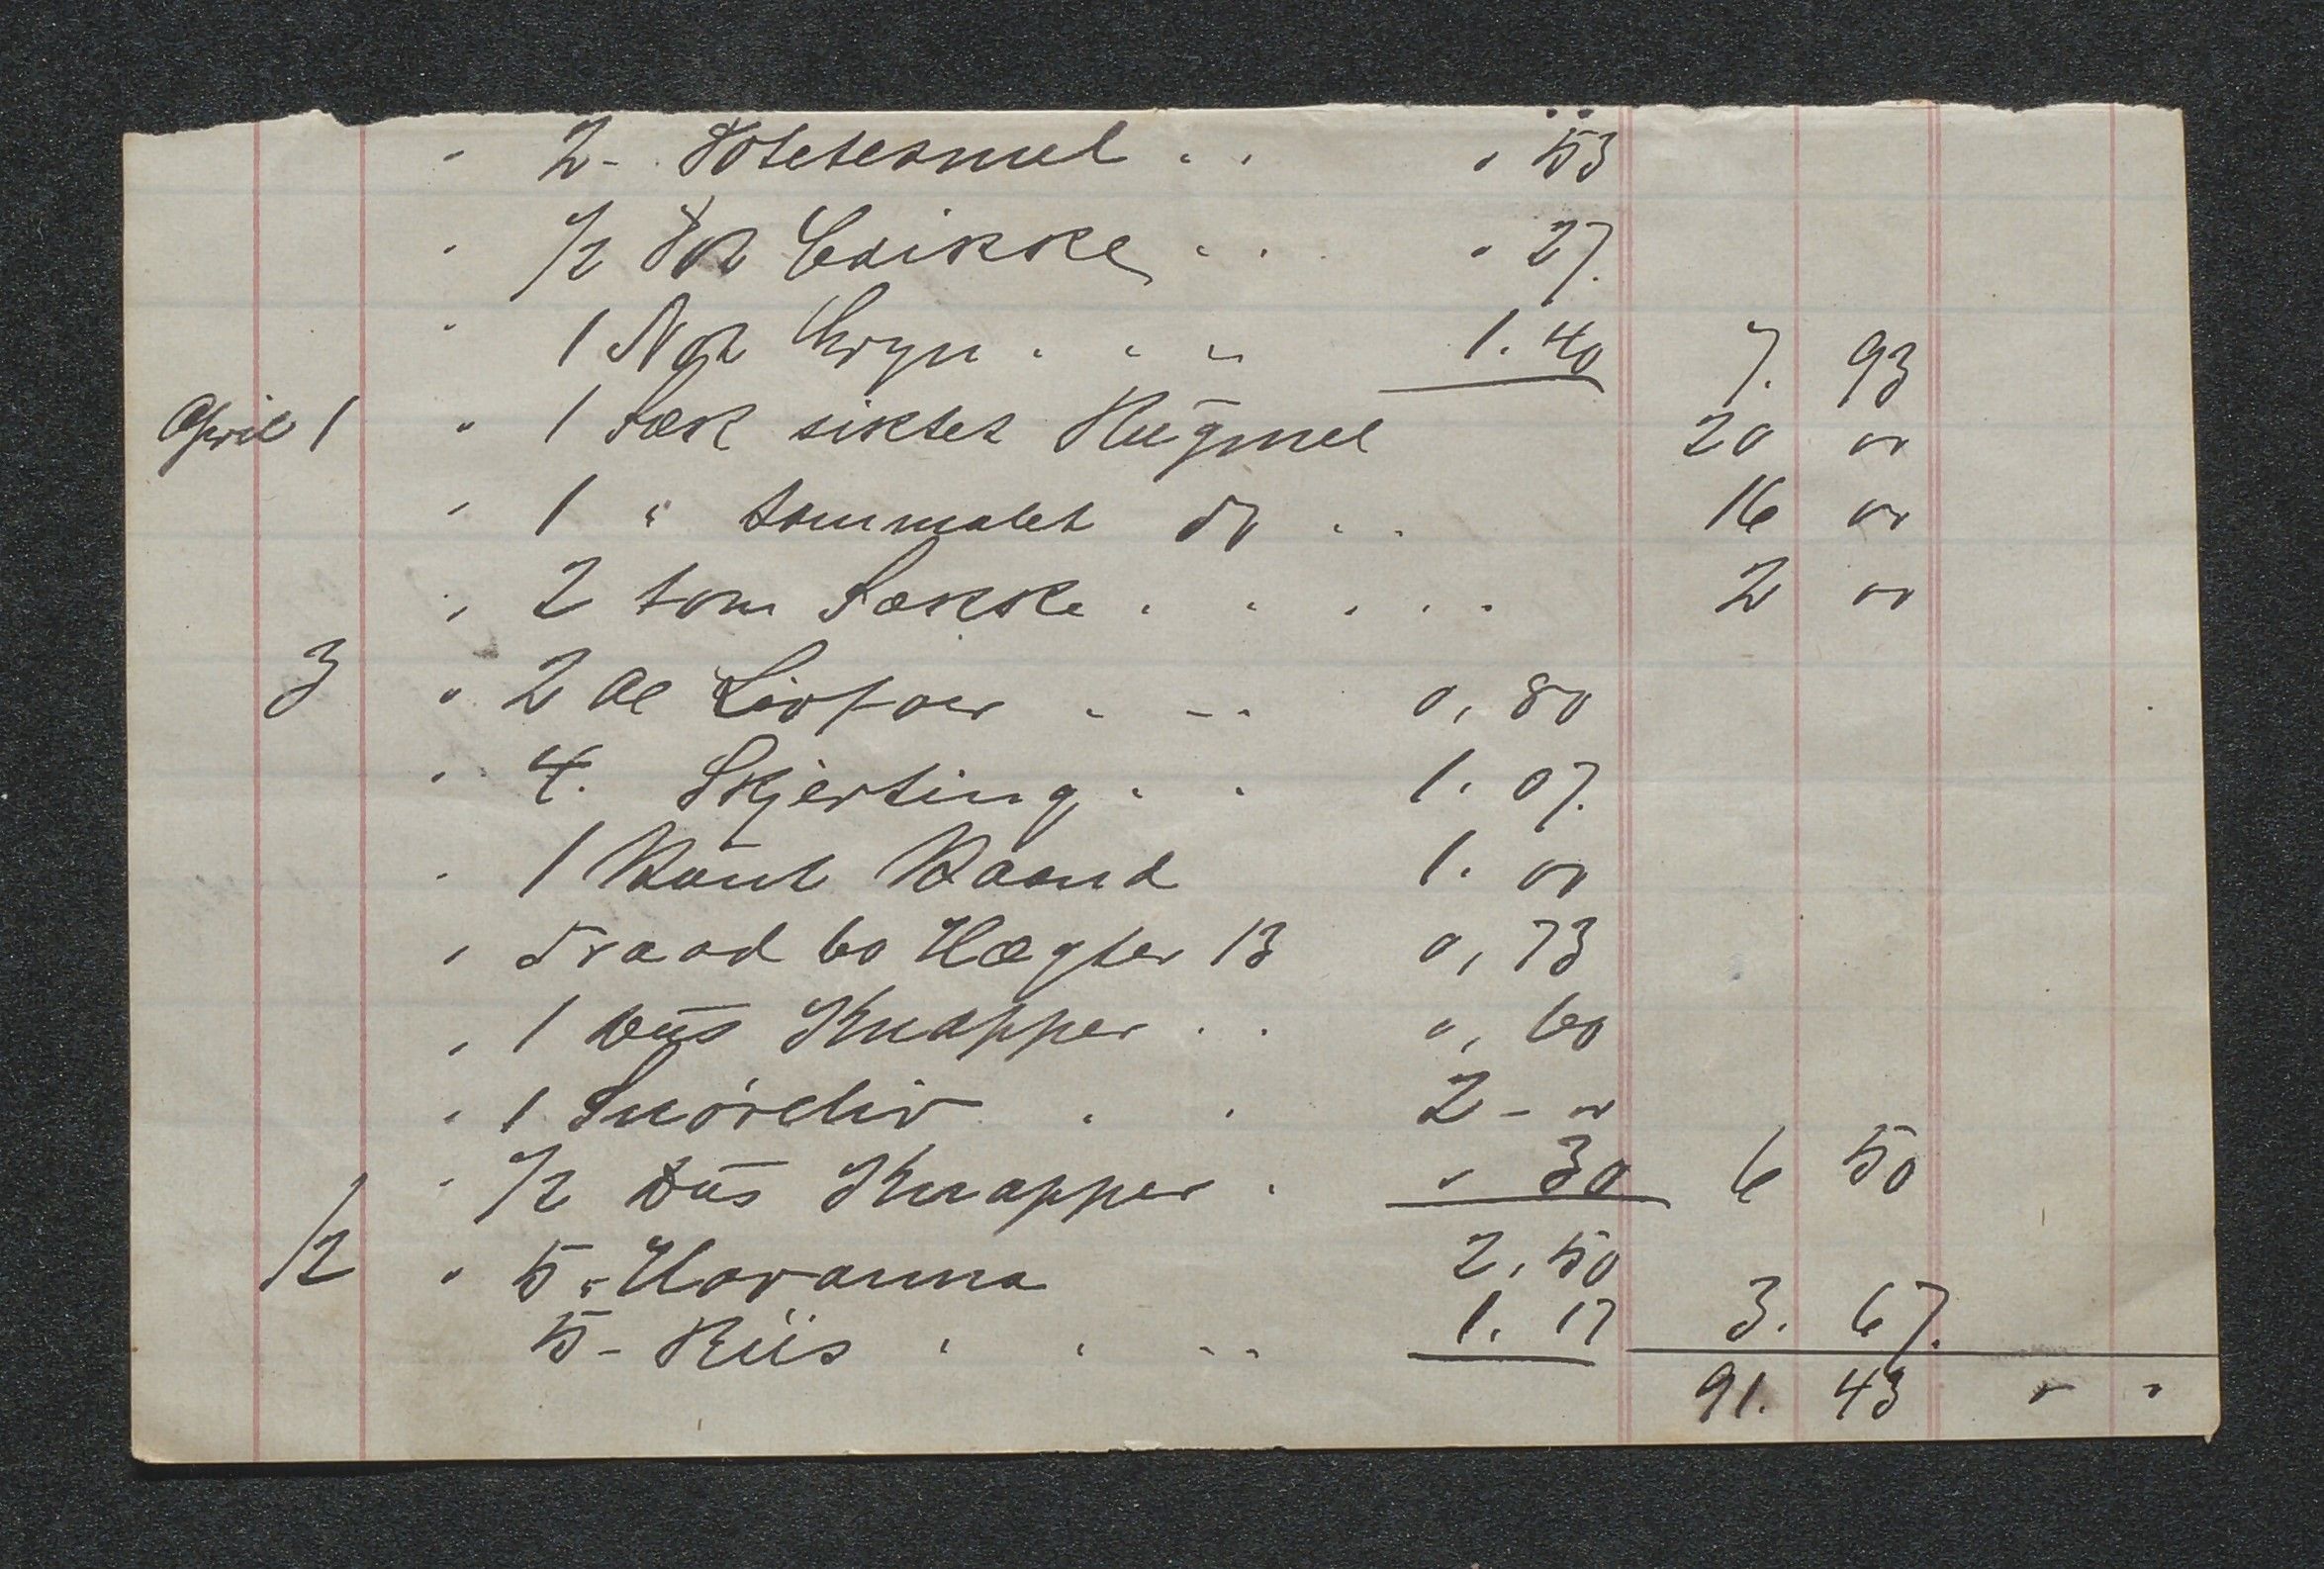 " 2 - Potetesmel . . " 53
" 1/2 Pk Cxikke . . " 27.
" 1 No Gryn . . . 1.40 7. 93
April 1 " 1 Sæk siktet Rugmel 20 00
" 1 " sammalet do . . 16 00
" 2 tom Sække . . . . . 2 00
3 " 2 Al Livfoer . - - 0,80
" 4. Skjerting . . 1.07.
" 1 Bunt Baand 1.00
" Traad 60 Hægter 13 0,73
" 1 Dus Knapper . . 0,60
" 1 Snöreliv . . 2 - 00
" 1/2 Dus Knapper . " 30 6 50
12 " 5 " Havanna 2,50
5 - Riis . . - - 1.17 3. 67.
91. 43 " "